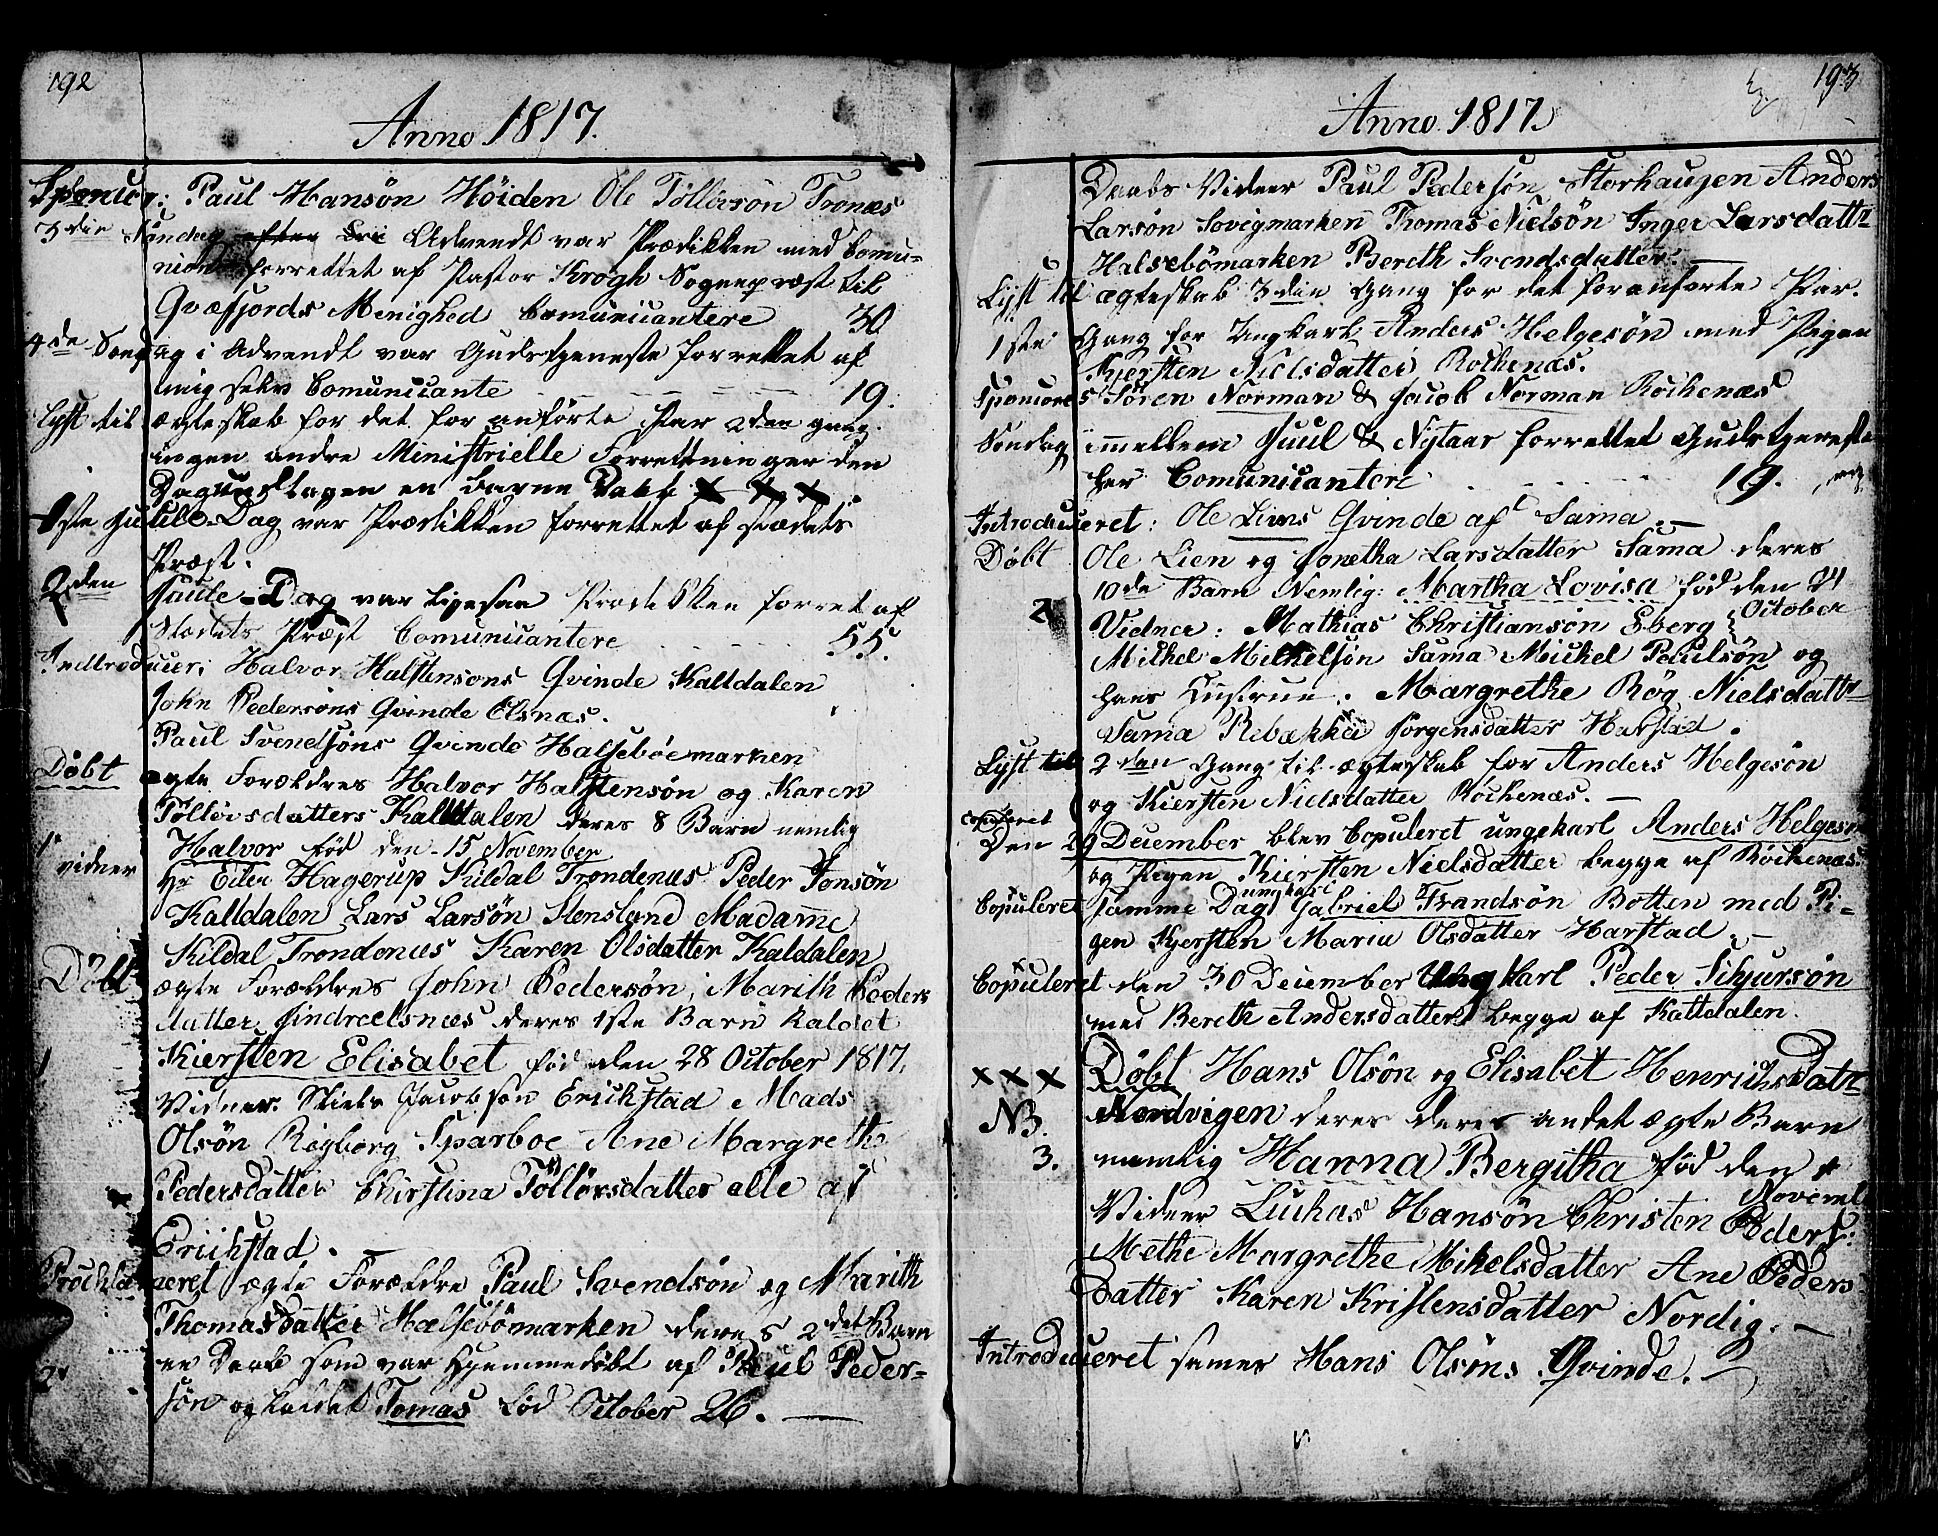 192
Anno 1817.
Sponsor: Paul Hansøn Höiden Ole Töllersøn Tronæs
3die Søndag Advendt var Prædikken med Comu-
nion forrettet af Pastor Krogh Sognepræst til
Qvæfjords Menighed Comunicantere 30
4de Søndag i Advendt var Gudstjeneste forrettet af
mig selv Comunicante 19.
Lyst til ægteskab for det for anførte Par 2den gang.
ingen andre Ministrielle Forrettninger den
Dag undtagen en barne Daab x x x.
1ste Juule-Dag var Prædikken forrettet af stædets
Præst.
2den Juule-Dag var ligesaa Prædikken forret af
Stædets Præst Comunicantere 55.
Indtroducer: Halvor Halstensøns Qvinde Kaltdalen
John Pedersøns Qvinde Elsnæs.
Paul Svendsøns Qvinde Halseböemarken
Döbt ægte Forældres Halvor Halstensøn og Karen
Töllörsdatters Kalttalen deres 8 Barn nemlig
Halvor fød den 15 November
1 vidner Hr Eiler Hagerup Kildal Trondenæs Peder Jonsøn
Kaltdalen Lars Larsøn Stensland Madame
Kildal Trondenæs Karen Olsdatter Kaldalen
Döbt ægte Forældres John Pedersøn, Marith Peders
datter Indreelsnæs deres 1ste Barn kaldet
1 Kiersten Elisabet fød den 28 October 1817.
Vidner. Niels Jacobsøn Erichstad Mads
Olsøn Rigborg Sparboe Ane Margrethe
Pedersdatter Christina Töllörsdatter alle af
Erichstad.
Prochlameret ægte Forældre Paul Svendsøn og Marith
Thomasdatter Halsebömarken deres 2det Barn
en Daab som var hjemmedöbt af Paul Peder-
2 søn og kaldet Tomas fød October 26.
193
Anno 1817.
Daabs Vidner Paul Pedersøn Storhaugen Anders
Larsøn Sovigmarken Thomas Nielsøn Inger Larsdattr
Halsebömarken Bereth Svendsdatter.
Lyst til ægteskab 3die Gang for det foranførte Par.
1ste Gang for Ungkarl Anders Helgesøn med Pigen
Kjersten Nielsdatter Rochenæs.
Sponsores Sören Norman & Jacob Norman Röchenæs
Søndag immellem Juul & Nytaar forrettet Gudstjeneste
her Comunicantere 19.
Introduceret: Ole Liens Qvinde af Sama.
Döbt Ole Lien og Jonetha Larsdatter Sama deres
10de Barn Nemlig: Martha Lovisa fød den 24
October
2 Vidner: Mathias Christiansøn Eberg
Mikel Mikkelsøn Sama Mickel Paulsøn og
hans Hustrue. Margrethe Røg Nielsdattr
Sama Rebækka Jørgensdatter Harstad.
Lyst til 2den Gang til ægteskab for Anders Helgesøn
og Kiersten Nielsdatter Röchenæs.
Copuleret
Den 29 December blev Copuleret ungekarl Anders Helgesøn
og Pigen Kiersten Nielsdatter begge af Röchenæs.
ungkarl
Copuleret samme Dag Gabriel Frandsøn Botten med Pi-
gen Kjersten Maria Olsdatter Harstad.
Copuleret den 30 December Ungkarl Peder Schjursøn
med Bereth Andersdatter begge af Kaltdalen.
x x x Döbt Hans Olsøn og Elisabet Henrichsdattr
NB. Nordvigen deres deres andet ægte Barn
3. nemlig Hanna Bergitha fød den
Novembr
Vidner Luchas Hansøn Christen Peders:
Methe Margrethe Mikelsdatter Ane Peders
datter Karen Kristensdatter Nordig.
Introduceret samer Hans Olsøns Qvinde.